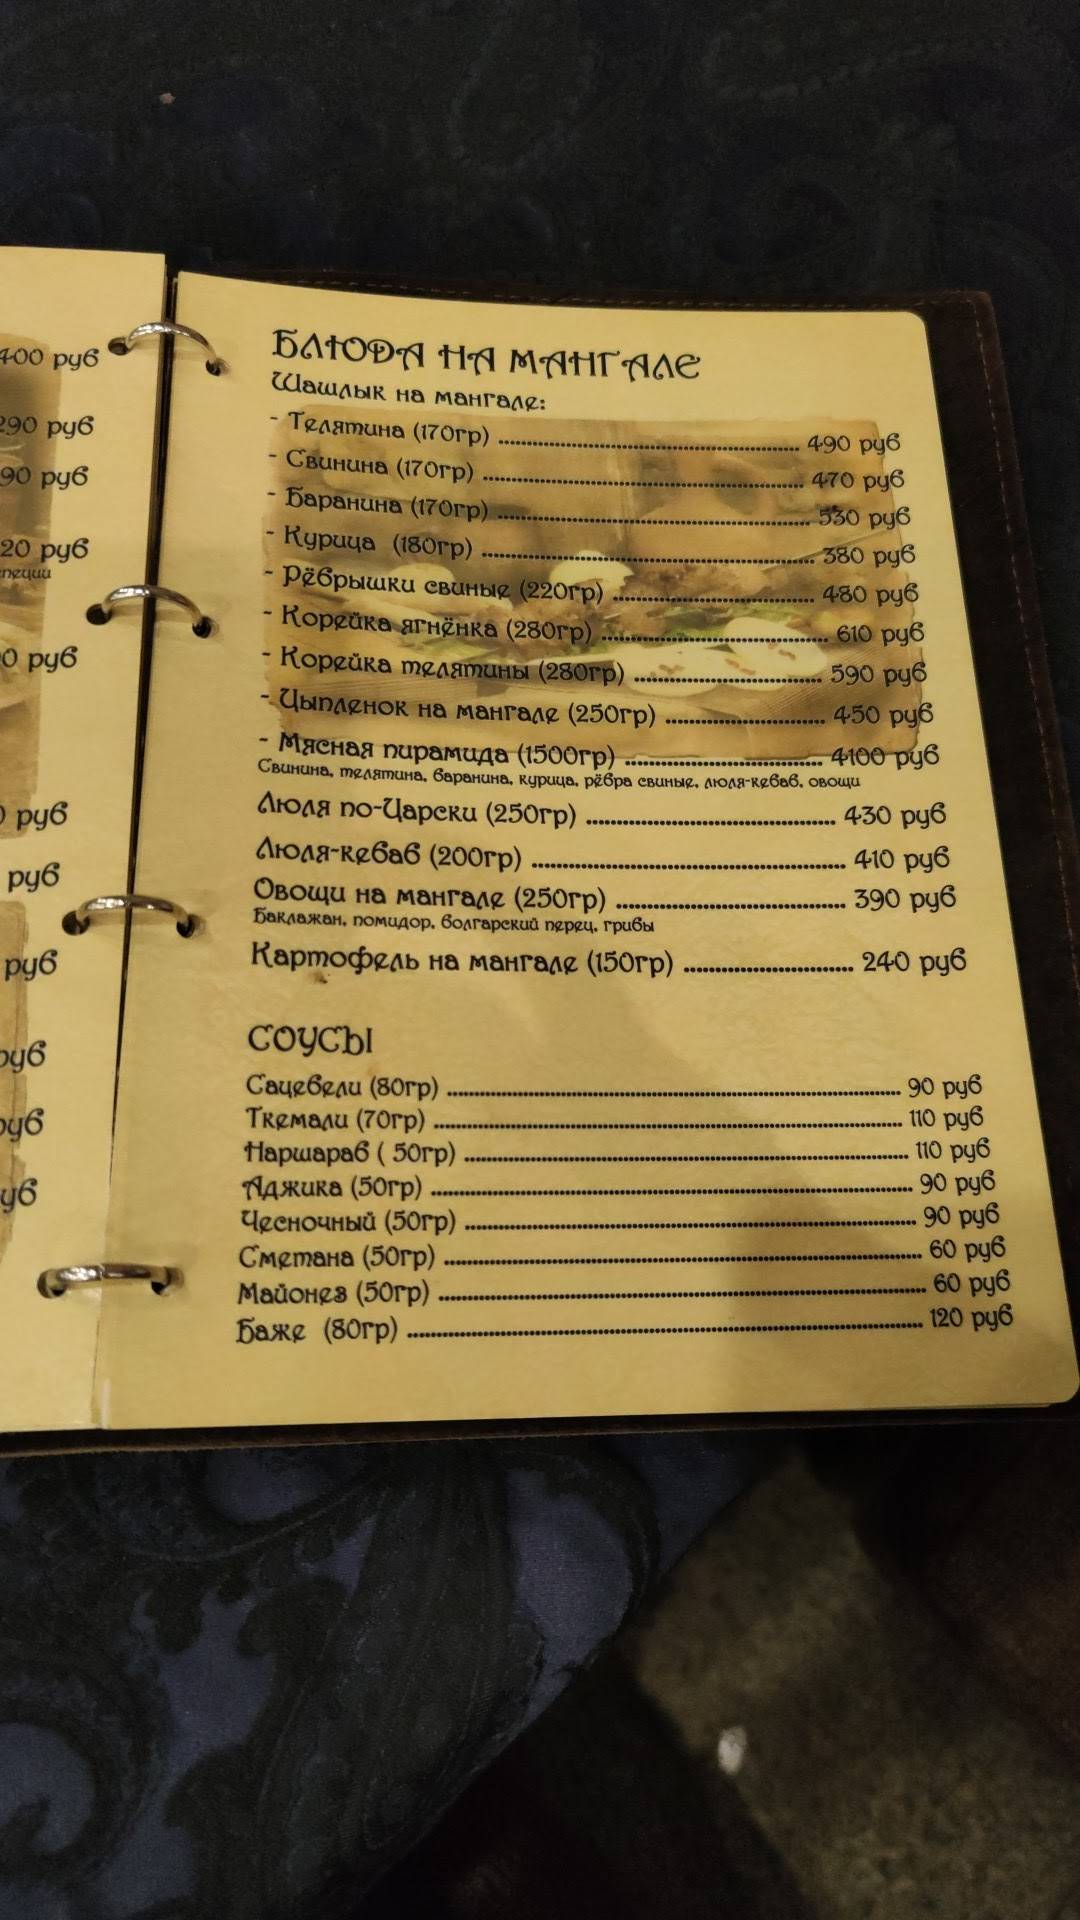 400 руб
290 руб
90 руб
20 руб
специи
0 руб
0 руб
руб
руб
руб
руб
руб
БЛЮДА НА МАНГАЛЕ
Шашлык на мангале:
- Телятина (170гр) ........ 490 руб
- Свинина (170гр) ........ 470 руб
- Баранина (170гр) ........ 530 руб
- Курица (180гр) ........ 380 руб
- Рёбрышки свиные (220гр) ........ 480 руб
- Корейка ягнёнка (280гр) ........ 610 руб
- Корейка телятины (280гр) ........ 590 руб
- Цыпленок на мангале (250гр) ........ 450 руб
- Мясная пирамида (1500гр) ........ 4100 руб
Свинина, телятина, баранина, курица, рёбра свиные, люля-кебаб, овощи
Люля по-Царски (250гр) ........ 430 руб
Люля-кебаб (200гр) ........ 410 руб
Овощи на мангале (250гр) ........ 390 руб
Баклажан, помидор, болгарский перец, грибы
Картофель на мангале (150гр) ........ 240 руб
СОУСЫ
Сацебели (80гр) ........ 90 руб
Ткемали (70гр) ........ 110 руб
Наршараб ( 50гр) ........ 110 руб
Аджика (50гр) ........ 90 руб
Чесночный (50гр) ........ 90 руб
Сметана (50гр) ........ 60 руб
Майонез (50гр) ........ 60 руб
Баже (80гр) ........ 120 руб